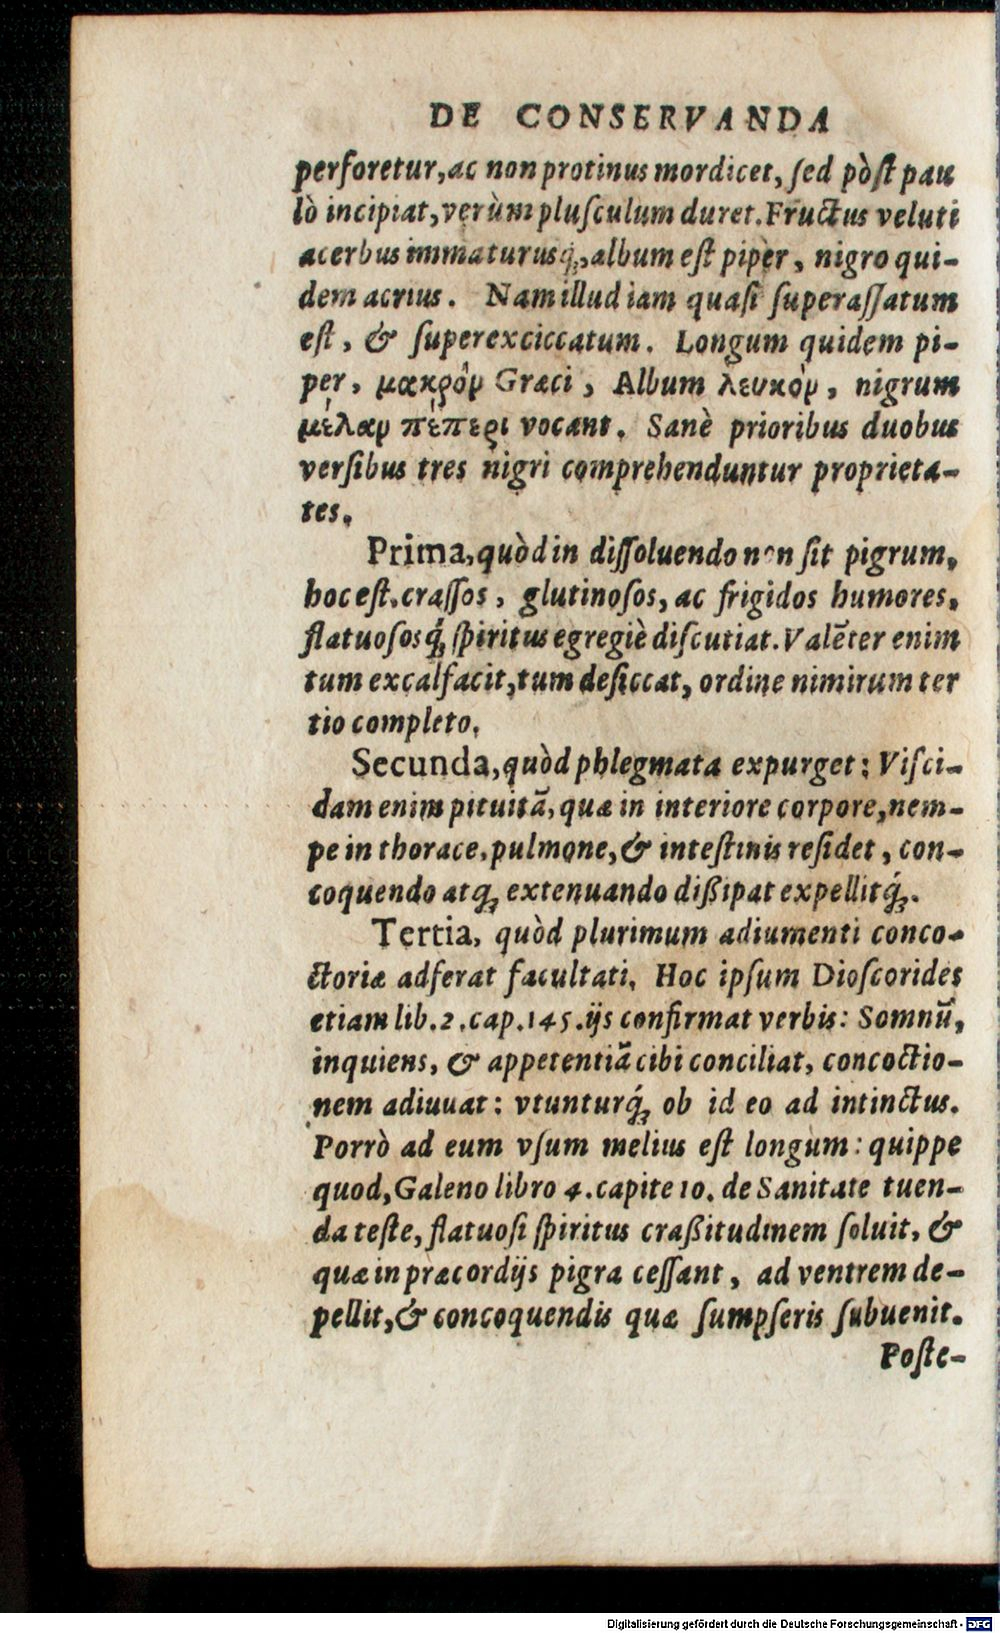 DE CONSERVANDA
perforetur, ac non protinus mordicet, sed pòst pau
lò incipiat, verùm plusculum duret. Fructus veluti
acerbus immaturusq́;, album est pipèr, nigro qui-
dem acrius. Nam illud iam quasi superassatum
est, & superexciccatum. Longum quidem pi-
per, μακρὸν Græci, Album λευκὸν, nigrum
μέλαν πέπερι vocant. Sanè prioribus duobus
versibus tres nigri comprehenduntur proprieta-
tes.
Prima, quòd in dissoluendo non sit pigrum,
hoc est, crassos, glutinosos, ac frigidos humores,
flatuososq́; spiritus egregiè discutiat. Valēter enim
tum excalfacit, tum desiccat, ordine nimirum ter
tio completo.
Secunda, quòd phlegmata expurget: Visci-
dam enim pituitā, quæ in interiore corpore, nem-
pe in thorace, pulmone, & intestinis residet, con-
coquendo atq; extenuando dißipat expellitq́;.
Tertia, quòd plurimum adiumenti conco-
ctoriæ adferat facultati. Hoc ipsum Dioscorides
etiam lib. 2. cap. 145. ijs confirmat verbis: Somnū,
inquiens, & appetentiā cibi conciliat, concoctio-
nem adiuuat: vtunturq́; ob id eo ad intinctus.
Porrò ad eum vsum melius est longum: quippe
quod, Galeno libro 4. capite 10. de Sanitate tuen-
da teste, flatuosi spiritus craßitudinem soluit, &
quæ in præcordijs pigra cessant, ad ventrem de-
pellit, & concoquendis quæ sumpseris subuenit.
Poste-
Digitalisierung gefördert durch die Deutsche Forschungsgemeinschaft - DFG